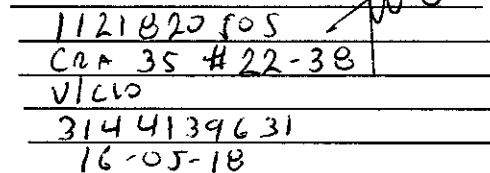 1121820505
CRA 35 # 22-38
V/CIO
3144139631
16-05-18